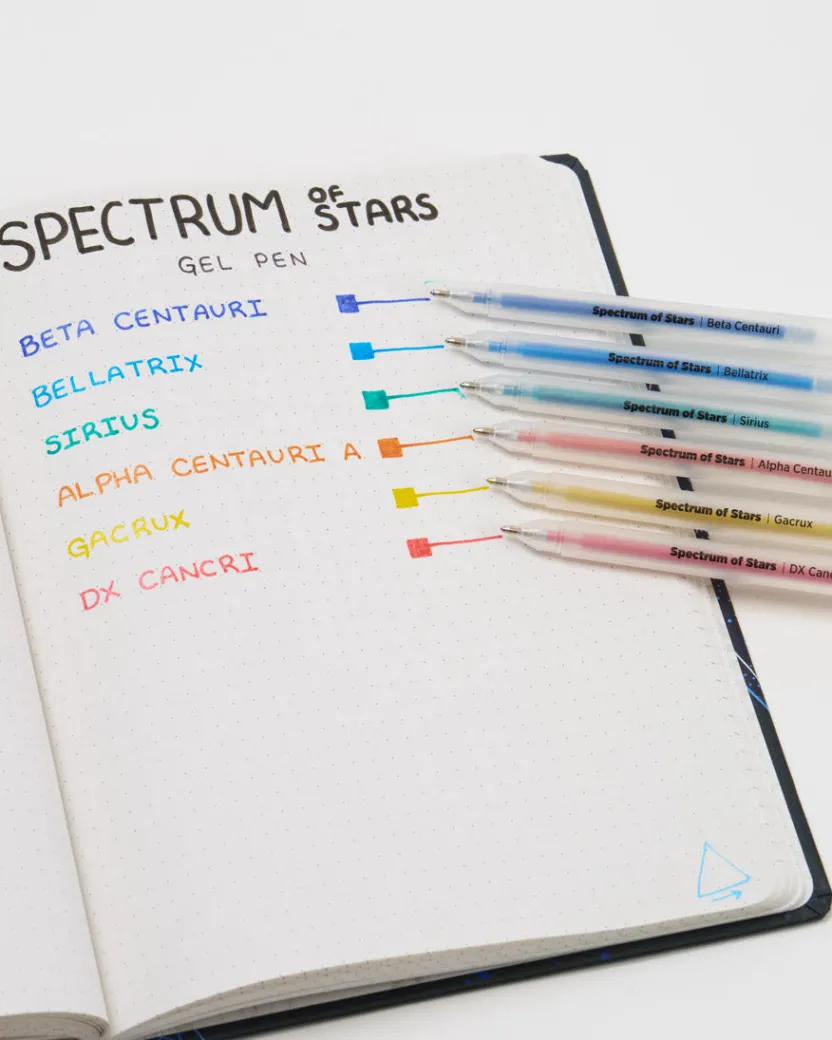 SPECTRUM OF STARS
GEL PEN
BETA CENTAURI
BELLATRIX
SIRIUS
ALPHA CENTAURI A
GACRUX
DX CANCRI
Spectrum of Stars | Beta Centauri
Spectrum of Stars | Bellatrix
Spectrum of Stars | Sirius
Spectrum of Stars | Alpha Centau
Spectrum of Stars | Gacrux
Spectrum of Stars | DX Canc